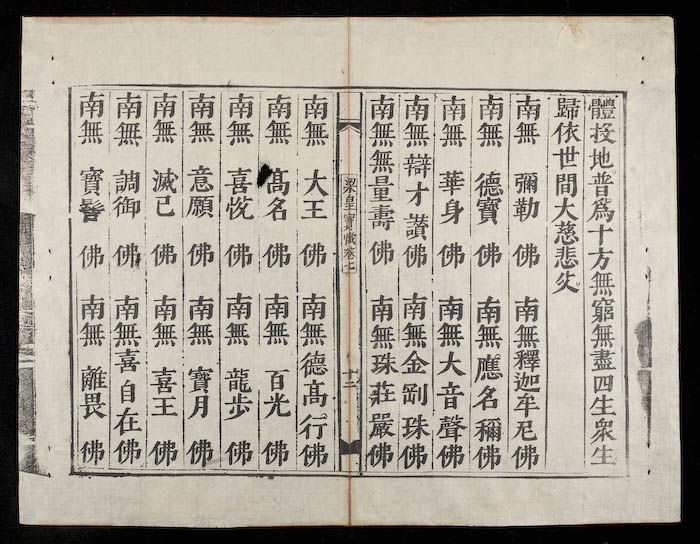 體投地普爲十方無窮無盡四生衆生
歸依世間大慈悲父
南無 彌勒 佛 南無釋迦牟尼佛
南無 德寶 佛 南無應名稱佛
南無 華身 佛 南無大音聲佛
南無辯才讚佛 南無金剛珠佛
南無無量壽佛 南無珠莊嚴佛
梁皇寶懺卷七 十二
南無 大王 佛 南無德高行佛
南無 高名 佛 南無 百光 佛
南無 喜悅 佛 南無 龍步 佛
南無 意願 佛 南無 寶月 佛
南無 滅己 佛 南無 喜王 佛
南無 調御 佛 南無喜自在佛
南無 寶髻 佛 南無 離畏 佛